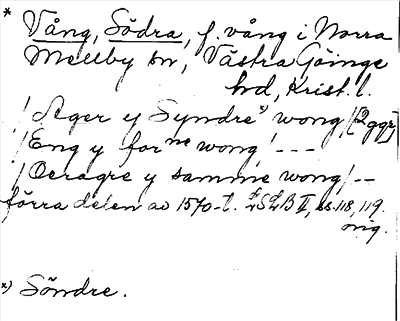 * Vång, Södra, f. vång i Norra
Mellby sn, Västra Göinge
hd, Krist. l.
/ Ager y Syndre *) wong / [2 ggr]
/ Eng y for ne wong / ---
/ Oeragre y samme wong / --
förra delen av 1570-t. LSLB II, ss. 118, 119.
orig.
*) Söndre.